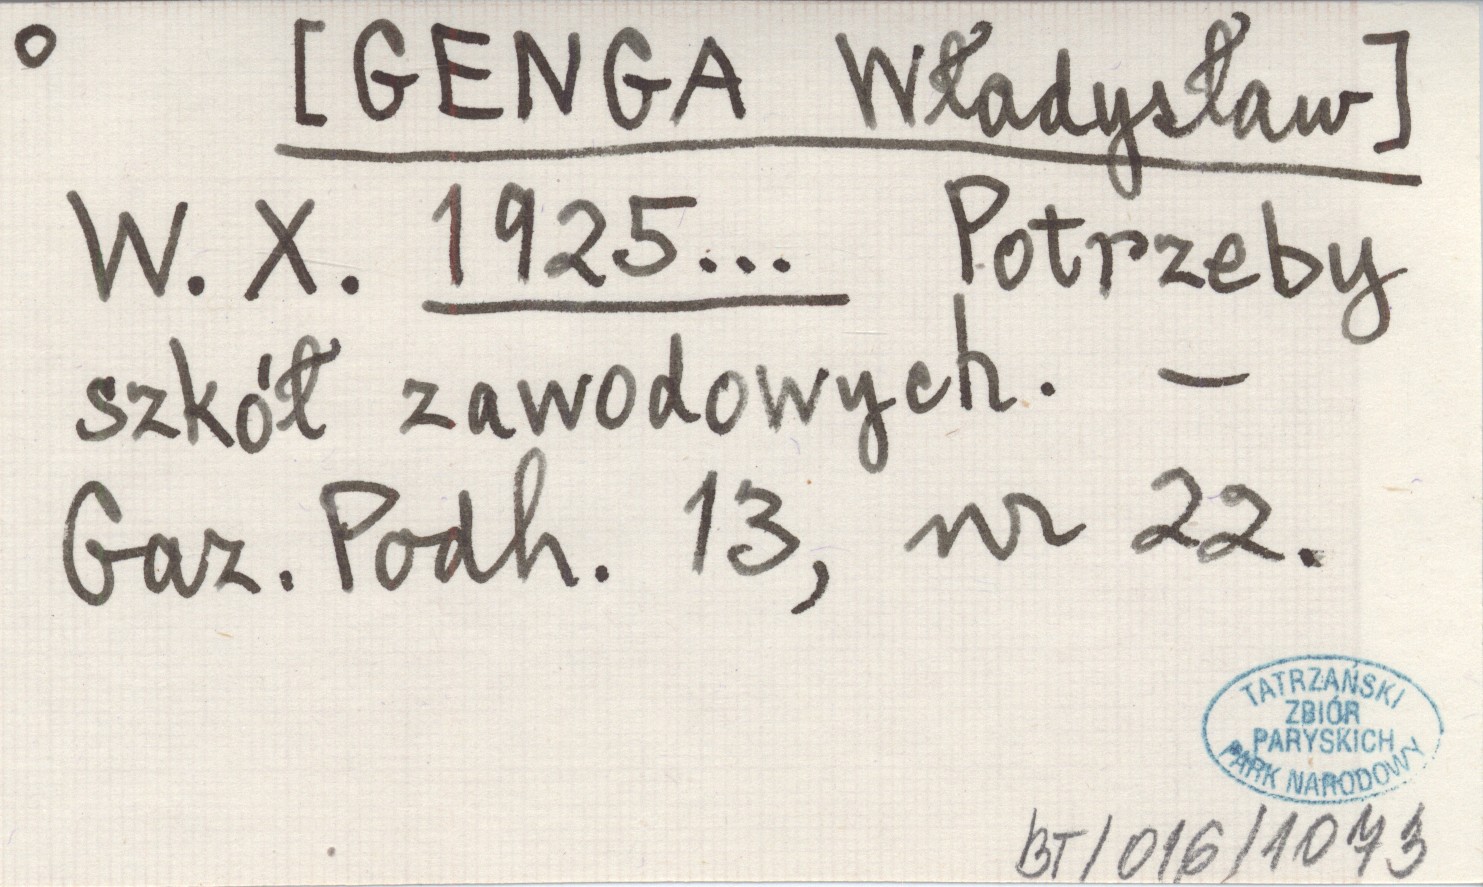 ° [GENGA Władysław]
W. X. 1925... Potrzeby
szkół zawodowych. —
Gaz. Podh. 13, nr 22.
TATRZAŃSKI
ZBIÓR
PARYSKICH
PARK NARODOWY
BT/016/1073